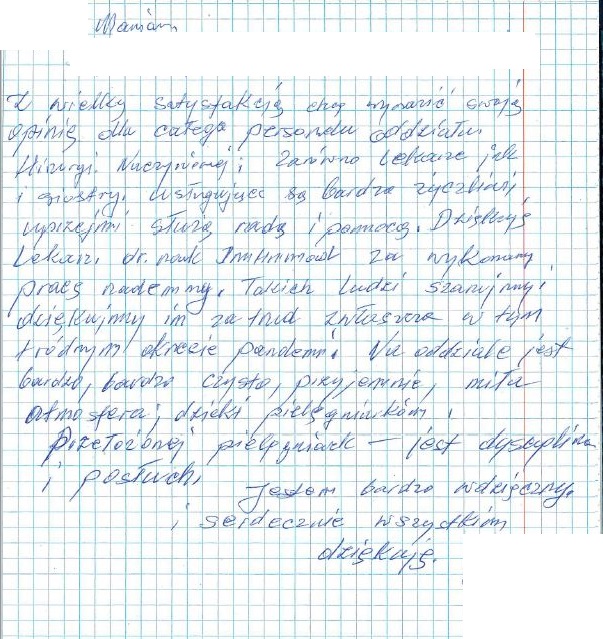 Marian
Z wielką satysfakcją chcę wyrazić swoją
opinię dla całego personelu oddziału
Hirurgi. Naczyniowej; Zarówno Lekarze jak
i siostry. usługujące są bardzo życzliwi,
uprzejmi służą radą i pomocą. Dziękuję
Lekarz, dr. nauk za wykonany
pracę nademną. Takich Ludzi szanujmy i
dziękujmy im za trud zwłaszcza w tym
tródnym okresie pandemi. Na oddziale jest
bardzo, bardzo czysto, przyjemnie, miła
atmosfera; dzięki pielęgniarkom.
Przełożonej pielęgniarek — jest dysciplina
i posłuch.
Jestem bardzo wdzięczny.
i serdecznie wszystkim
dziękuję.